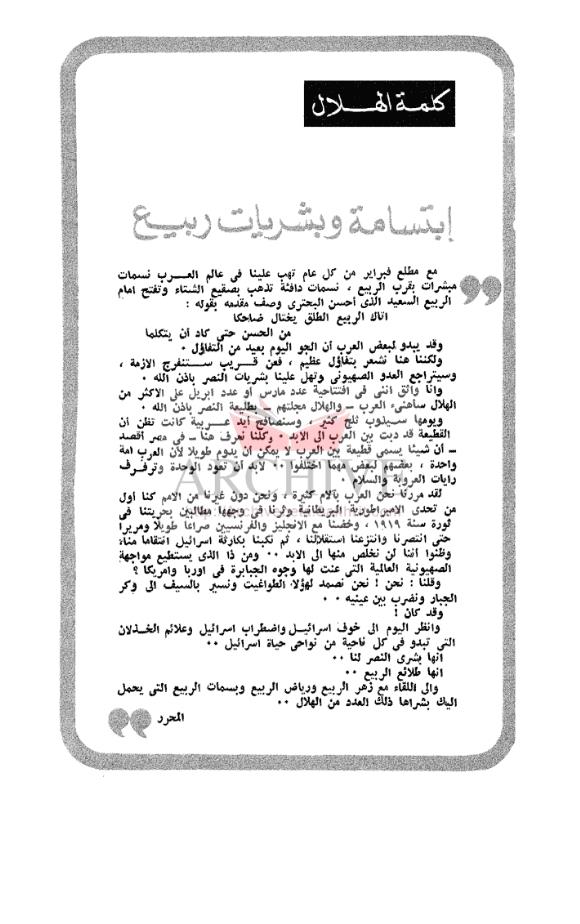 كلمة الهلال
إبتسامة وبشريات ربيع
مع مطلع فبراير من كل عام تهب علينا فى عالم العرب نسمات
مبشرات بقرب الربيع ، نسمات دافئة تذهب بصقيع الشتاء وتفتح امام
الربيع السعيد الذى أحسن البحترى وصف مقدمه بقوله :
اتاك الربيع الطلق يختال ضاحكا
من الحسن حتى كاد أن يتكلما
وقد يبدو لبعض العرب أن الجو اليوم بعيد من التفاؤل ٠
ولكننا هنا نشعر بتفاؤل عظيم ، فعن قريب ستنفرج الازمة ،
وسيتراجع العدو الصهيونى وتهل علينا بشريات النصر باذن الله ٠
وانا واثق اننى فى افتتاحية عدد مارس او عدد ابريل على الاكثر من
الهلال سأهنىء العرب – والهلال مجلتهم – بطليعة النصر باذن الله ٠
ويومها سيذوب ثلج كثير ، وسنصافح أيد عربية كانت تظن أن
القطيعة قد دبت بين العرب الى الابد ٠ وكلنا نعرف هنا – فى مصر أقصد
– أن شيئا يسمى قطيعة بين العرب لا يمكن أن يدوم طويلا لأن العرب امة
واحدة ، بعضهم لبعض مهما اختلفوا ٠٠ لابد أن تعود الوحدة وترفرف
رايات العروبة والسلام ٠
ARCHIVE
لقد مررنا نحن العرب بآلام كثيرة ، ونحن دون غيرنا من الامم كنا أول
من تحدى الامبراطورية البريطانية وثرنا فى وجهها مطالبين بحريتنا فى
ثورة سنة ١٩١٩ ، وخضنا مع الانجليز والفرنسيين صراعا طويلا ومريرا
حتى انتصرنا وانتزعنا استقلالنا ، ثم نكبنا بكارثة اسرائيل انتقاما منا،
وظنوا أننا لن نخلص منها الى الابد ٠٠ ومن ذا الذى يستطيع مواجهة
الصهيونية العالمية التى عنت لها وجوه الجبابرة فى اوربا وامريكا ؟
وقلنا : نحن ! نحن نصمد لهؤلاء الطواغيت ونسير بالسيف الى وكر
الجبار ونضرب بين عينيه ٠ ٠
وقد كان !
وانظر اليوم الى خوف اسرائيل واضطراب اسرائيل وعلائم الخذلان
التى تبدو فى كل ناحية من نواحى حياة اسرائيل ٠٠
انها بشرى النصر لنا ٠٠
انها طلائع الربيع ٠٠
والى اللقاء مع زهر الربيع ورياض الربيع وبسمات الربيع التى يحمل
اليك بشراها ذلك العدد من الهلال ٠٠
المحرر